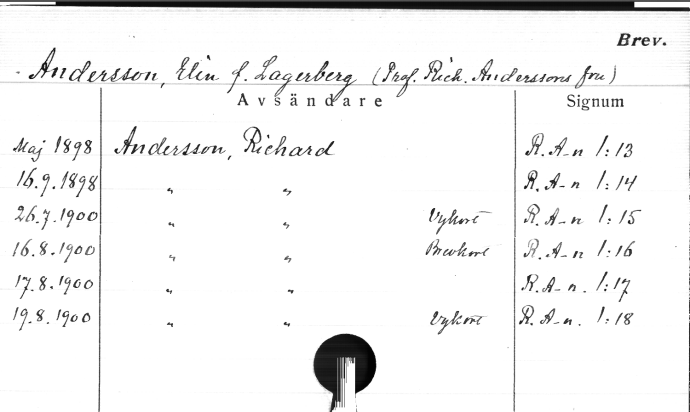 Brev.
Andersson, Elin f. Lagerberg (Prof. Rich. Anderssons fru)
Avsändare Signum
Maj 1898 Andersson, Richard R. A-n 1:13
16.9.1898 " " R. A-n 1:14
26.7.1900 " " Vykort R. A-n 1:15
16.8.1900 " " Brevkort R. A-n 1:16
17.8.1900 " " R. A-n. 1:17
19.8.1900 " " Vykort R. A-n. 1:18